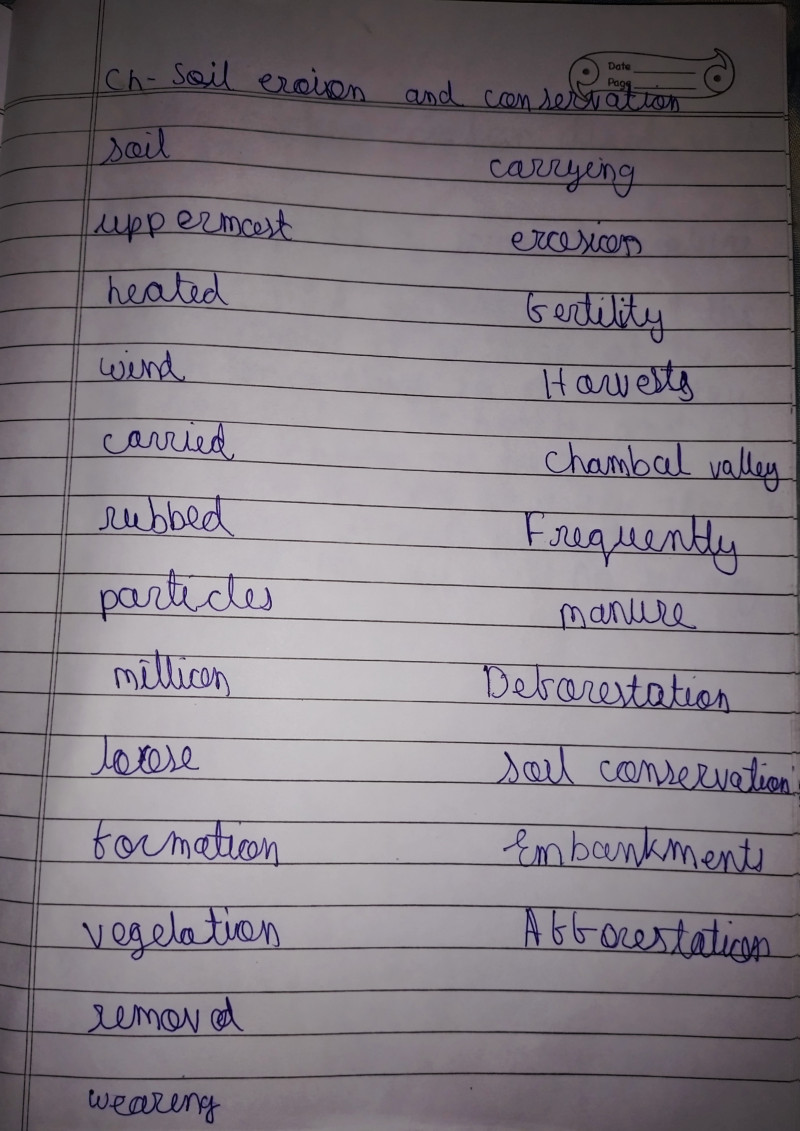 Date
Page
Ch- Soil eroion and conservation
soil
uppermost
heated
wind
carried
rubbed
particles
million
loose
formation
vegelation
removed
wearing
carrying
erosion
fertility
Harvests
Chambal valley
Frequently
manure
Deforestation
Soil conservation
Embankments
Afforestation